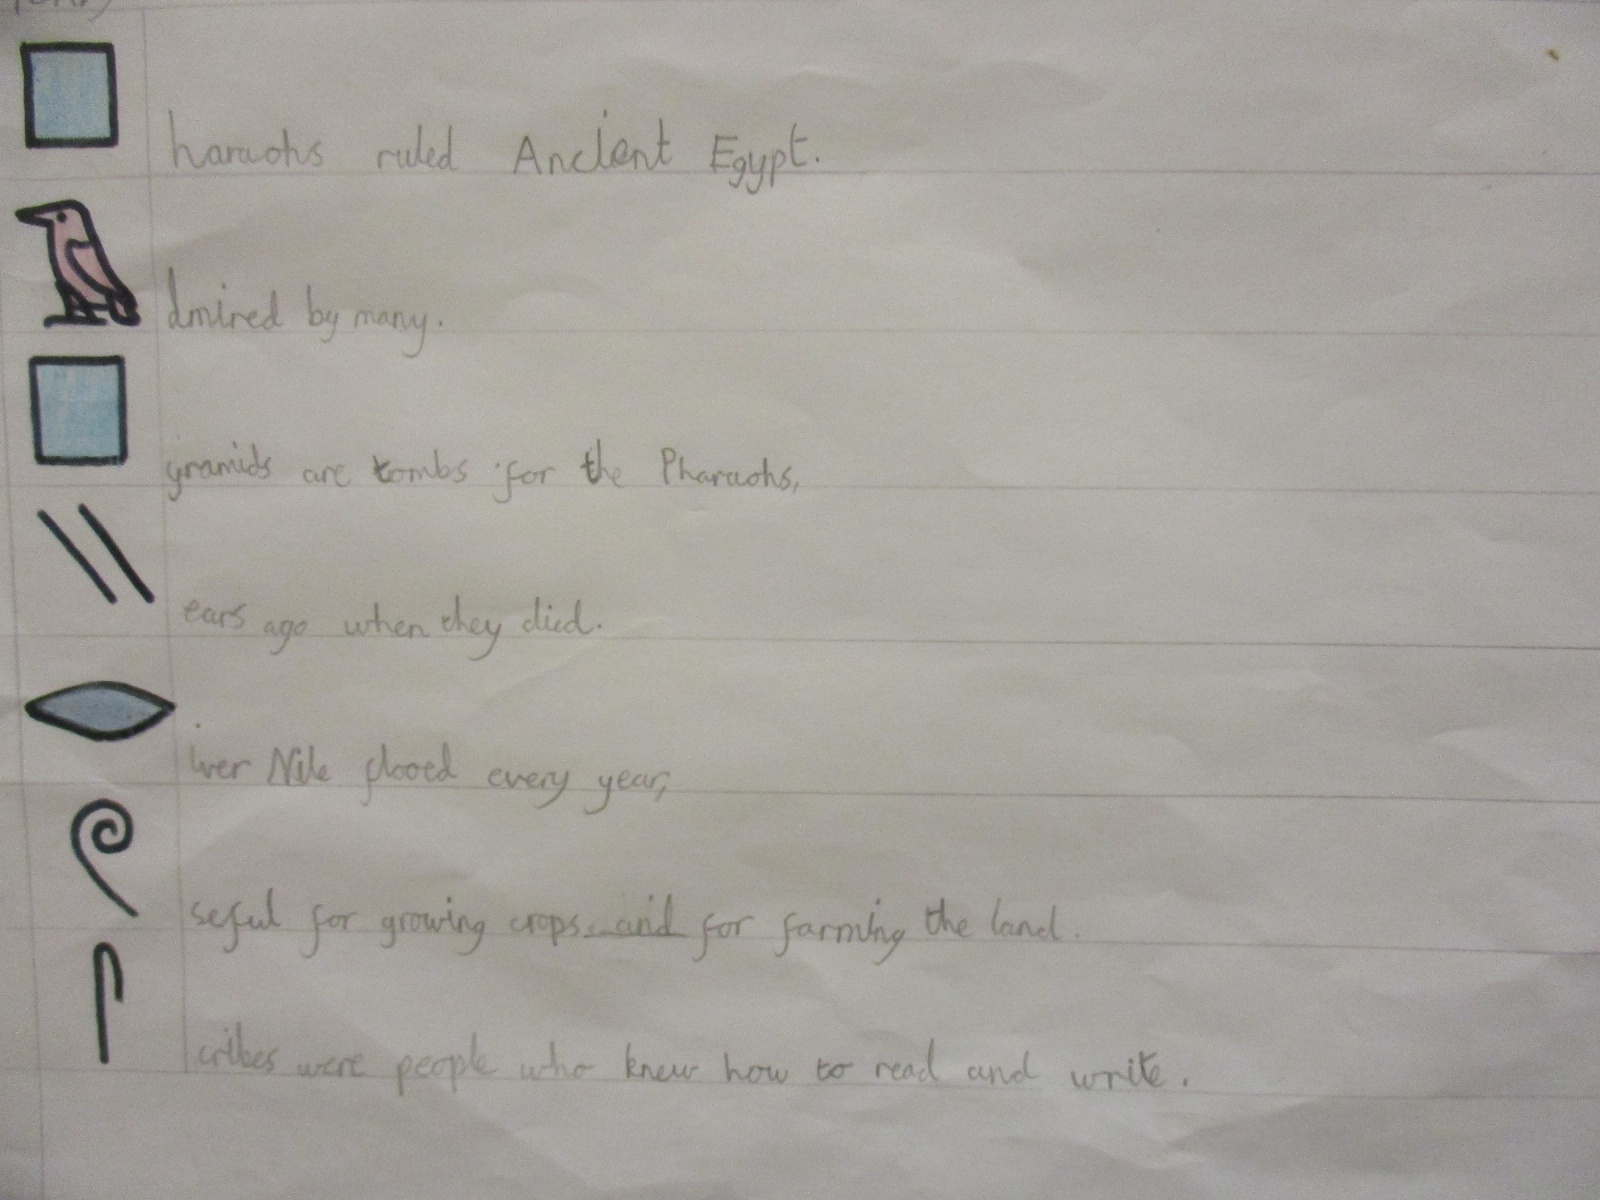 haraohs ruled Ancient Egypt.
dmired by many.
yramids are tombs for the Pharaohs,
ears ago when they died.
iver Nile flooed every year,
seful for growing crops and for farming the land.
cribes were people who knew how to read and write.